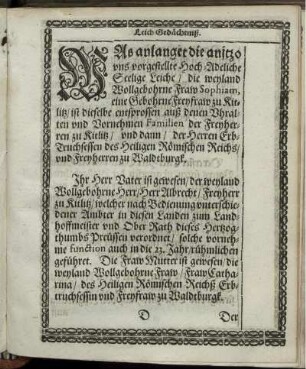 Leich Gedächtniß.
WAs anlanget die anitzo
vns vorgestellte Hoch Adeliche
Seelige Leiche / die weyland
Wollgebohrne Fraw Sophiam,
eine Gebohrne Freyfraw zu Kit-
litz / ist dieselbe entsprossen auß denen Vhral-
ten vnd Vornehmen Familien der Freyher-
ren zu Kitlitz / vnd dann / der Herren Erb-
Truchsessen des Heiligen Römischen Reichs /
vnd Freyherren zu Waldtburgk.
Ihr Herr Vater ist gewesen / der weyland
Wollgebohrne Herr / Herr Albrecht / Freyherr
zu Kitlitz / welcher nach Bedienung vnterschie-
dener Ämbter in diesen Landen zum Land-
hoffmeister vnd Ober Rath dieses Hertzog-
thumbs Preüssen verordnet / solche vorneh-
me function auch in die 23. Jahr / rühmlichen
geführet. Die Fraw Mutter ist gewesen / die
weyland Wollgebohrne Fraw / Fraw Catha-
rina / des Heiligen Römischen Reichß Erb-
truchsessin vnd Freyfraw zu Waldtburgk.
D
Der